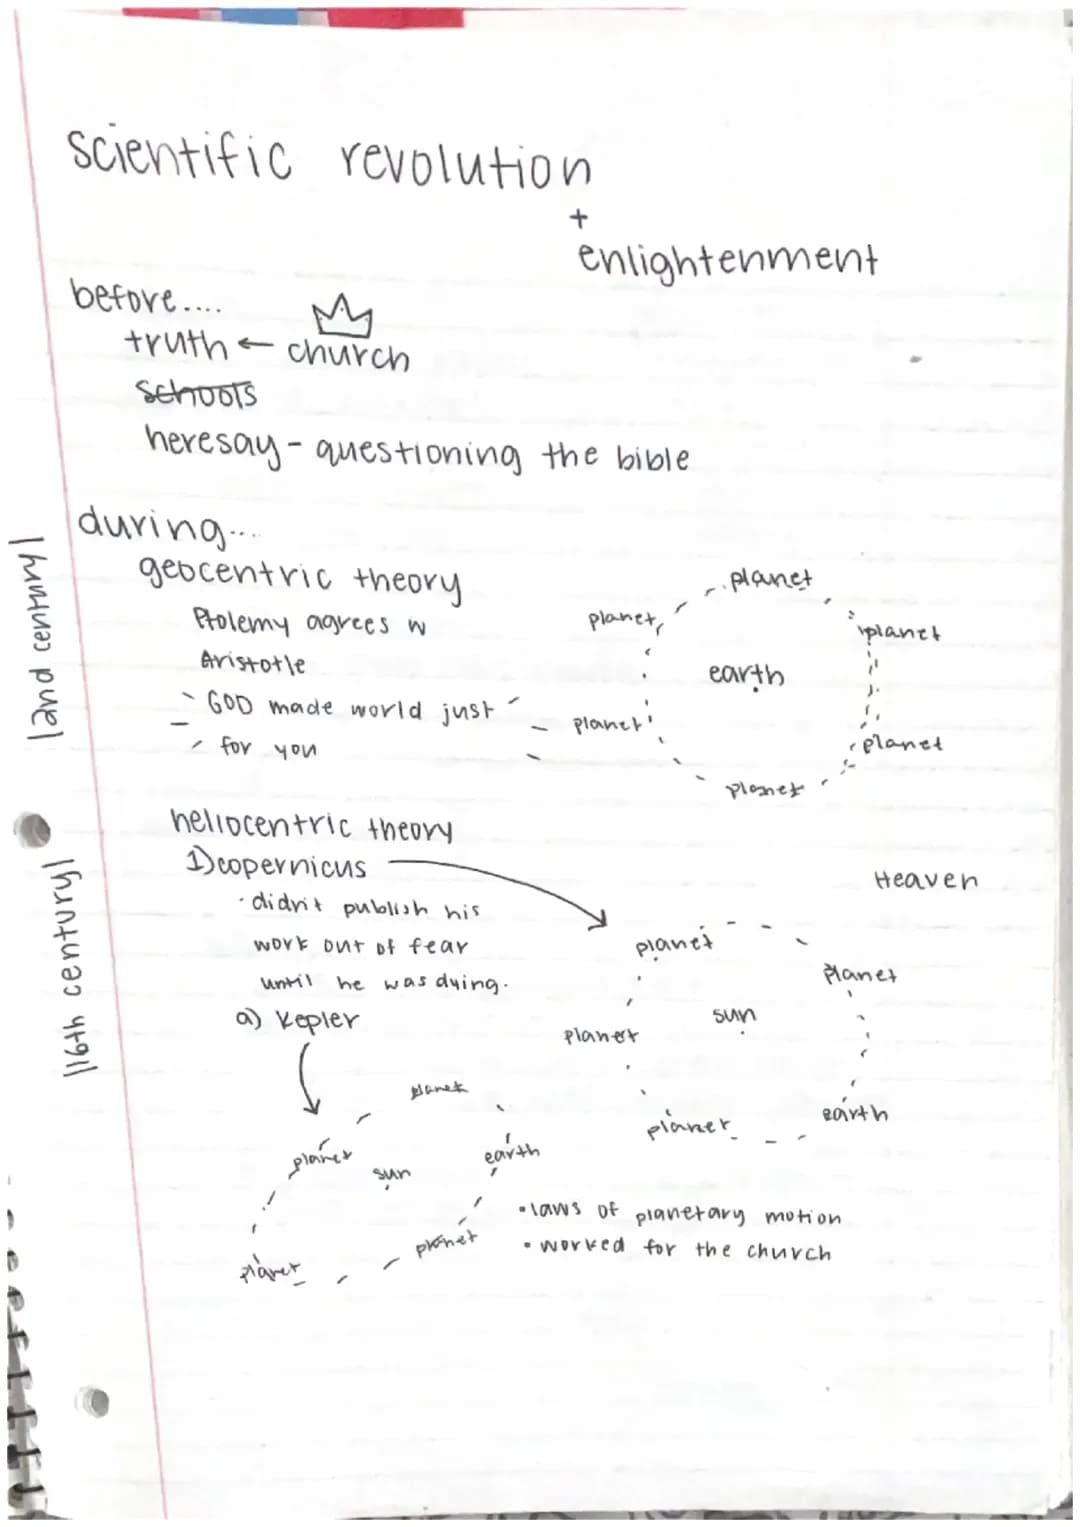 scientific revolution
+
enlightenment
before....
truth ← church
schools
heresay - questioning the bible
|2nd century|
during....
geocentric theory
Ptolemy agrees w
Aristotle
GOD made world just
for you
planet
planet
planet
earth
planet
planet
planet
|16th century|
heliocentric theory
1) copernicus
• didn't publish his
work out of fear
until he was dying.
Heaven
planet
planet
sun
planet
planet
earth
a) Kepler
planet
planet
sun
earth
planet
planet
• laws of planetary motion
• worked for the church